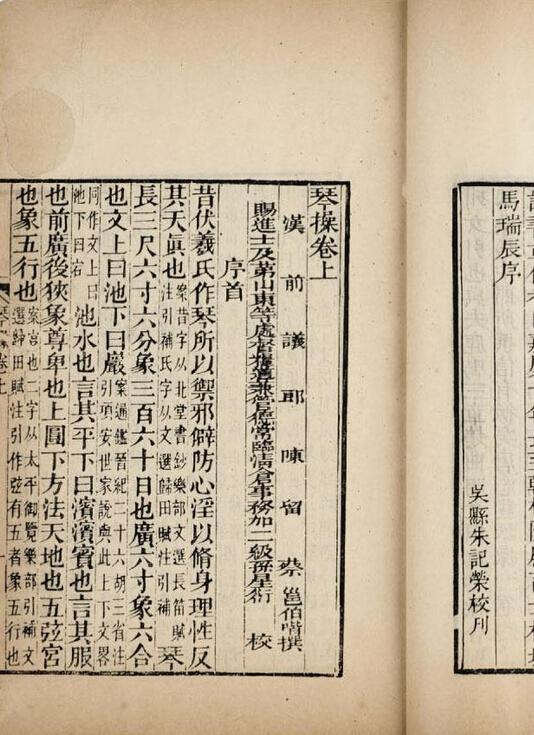 馬瑞辰序
吳縣朱記榮校刋
琴操卷上
漢前議郎陳留蔡邕伯喈撰
賜進士及第山東等處督糧道兼管德常臨清倉事務加二級孫星衍校
序首
昔伏羲氏作琴所以禦邪僻防心淫以脩身理性反
其天眞也案昔字从北堂書鈔樂部文選長笛賦注引補氏字从文選歸田賦注引補琴
長三尺六寸六分象三百六十日也廣六寸象六合
也文上曰池下曰巖案通鑑晉紀二十六胡三省注引項安世家說與此上下文畧
同作文上曰池下曰右池水也言其平下曰濱濱賓也言其服
也前廣後狹象尊卑也上圓下方法天地也五弦宮
也象五行也案宮也二字从太平御覽樂部引補文選歸田賦注引作弦有五者象五行也